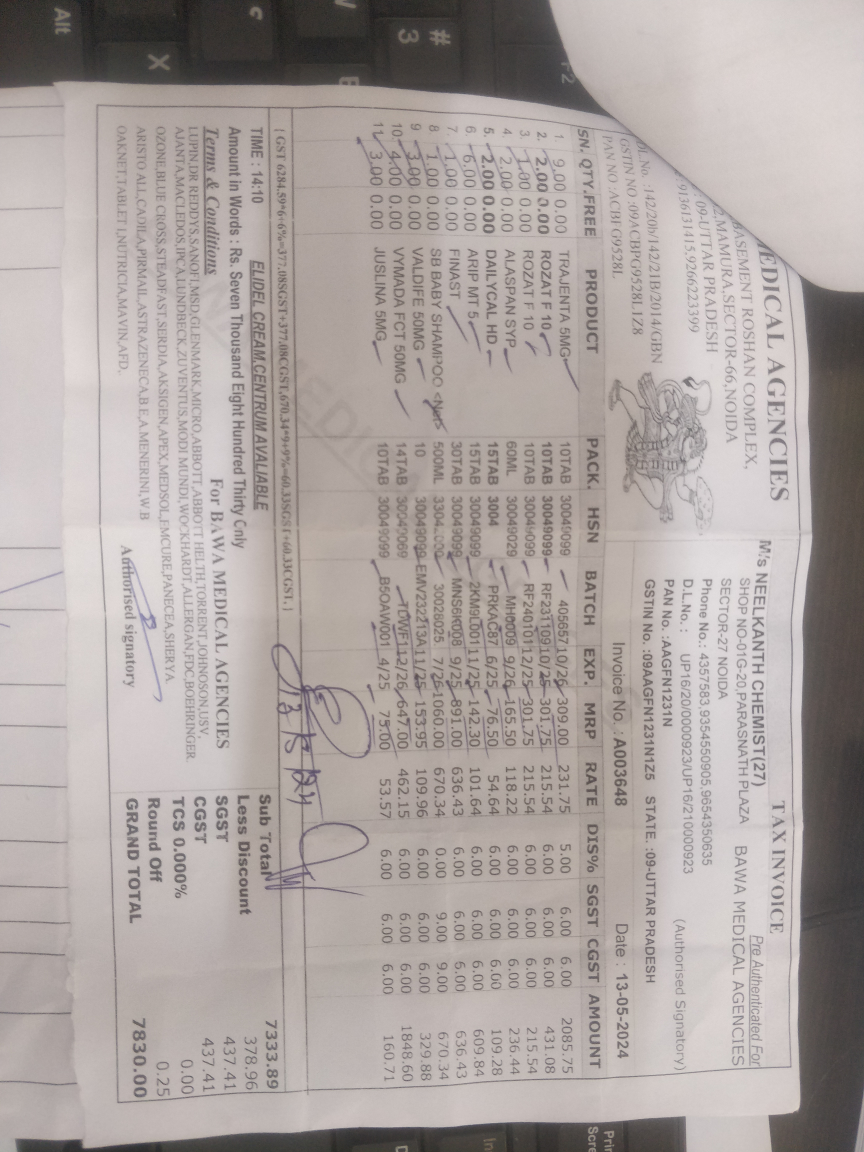 MEDICAL AGENCIES
BASEMENT ROSHAN COMPLEX,
2,MAMURA,SECTOR-66,NOIDA
09-UTTAR PRADESH
9136131415,9266223399
D.L.No. :142/20b/142/21B/2014/GBN
GSTIN NO :09ACBPG9528L1Z8
PAN NO :ACBPG9528L
TAX INVOICE
Pre Authenticated For
BAWA MEDICAL AGENCIES
(Authorised Signatory)
M/s NEELKANTH CHEMIST(27)
SHOP NO-01G-20,PARASNATH PLAZA
SECTOR-27 NOIDA
Phone No.: 4357583,9354550905,9654350635
D.L.No. : UP16/20/0000923/UP16/210000923
PAN No. :AAGFN1231N
GSTIN No. :09AAGFN1231N1Z5 STATE :09-UTTAR PRADESH
BAWA MEDICAL AGENCIES
Invoice No. : A003648 Date : 13-05-2024
SN. QTY.FREE PRODUCT PACK. HSN BATCH EXP. MRP RATE DIS% SGST CGST AMOUNT
1. 9.00 0.00 TRAJENTA 5MG 10TAB 30049099 405657 10/26 309.00 231.75 5.00 6.00 6.00 2085.75
2. 2.00 0.00 ROZAT F 10 10TAB 30049099 RF231109 10/25 301.75 215.54 6.00 6.00 6.00 431.08
3. 1.00 0.00 ROZAT F 10 10TAB 30049099 RF240101 12/25 301.75 215.54 6.00 6.00 6.00 215.54
4. 2.00 0.00 ALASPAN SYP 60ML 30049029 MH0009 9/26 165.50 118.22 6.00 6.00 6.00 236.44
5. 2.00 0.00 DAILYCAL HD 15TAB 3004 PRKAC87 6/25 76.50 54.64 6.00 6.00 6.00 109.28
6. 6.00 0.00 ARIP MT 5 15TAB 30049099 2KM9L001 11/25 142.30 101.64 6.00 6.00 6.00 609.84
7. 1.00 0.00 FINAST 30TAB 30049099 MNS6K008 9/25 891.00 636.43 6.00 6.00 6.00 636.43
8 1.00 0.00 SB BABY SHAMPOO 500ML 30028025 7/26 1060.00 670.34 0.00 9.00 9.00 670.34
9 3.00 0.00 VALDIFE 50MG 10 30049099 EMV232213A 11/25 153.95 109.96 6.00 6.00 6.00 329.88
10. 4.00 0.00 VYMADA FCT 50MG 14TAB 30049069 12/26 647.00 462.15 6.00 6.00 6.00 1848.60
11 3.00 0.00 JUSLINA 5MG 10TAB 30049099 B5OAW001 4/25 75.00 53.57 6.00 6.00 6.00 160.71
[ GST 6284.59*6+6%=377.08SGST+377.08CGST,670.34*9+9%=60.33SGST+60.33CGST, ]
TIME : 14:10 ELIDEL CREAM.CENTRUM AVALIABLE
Amount in Words : Rs. Seven Thousand Eight Hundred Thirty Only
Terms & Conditions For BAWA MEDICAL AGENCIES
LUPIN,DR REDDYS,SANOFI,MSD,GLENMARK,MICRO,ABBOTT,ABBOTT HELTH,TORRENT,JOHNOSON,USV,
AJANTA,MACLEDOS,IPCA,LUNDBECK,ZUVENTUS,MODI MUNDI,WOCKHARDT,ALLERGAN,FDC,BOEHRINGER
OZONE,BLUE CROSS,STEADFAST,SERDIA,AKSIGEN,APEX,MEDSOL,EMCURE,PANECEA,SHERYA.
ARISTO ALL,CADILA,PIRMAIL,ASTRAZENECA,B.E,A.MENERINI,W.B
OAKNET,TABLET I,NUTRICIA,MAVIN,AFD.
Authorised signatory
Sub Total 7333.89
Less Discount 378.96
SGST 437.41
CGST 437.41
TCS 0.000% 0.00
Round Off 0.25
GRAND TOTAL 7830.00
Alt
X
C
#
3
F2